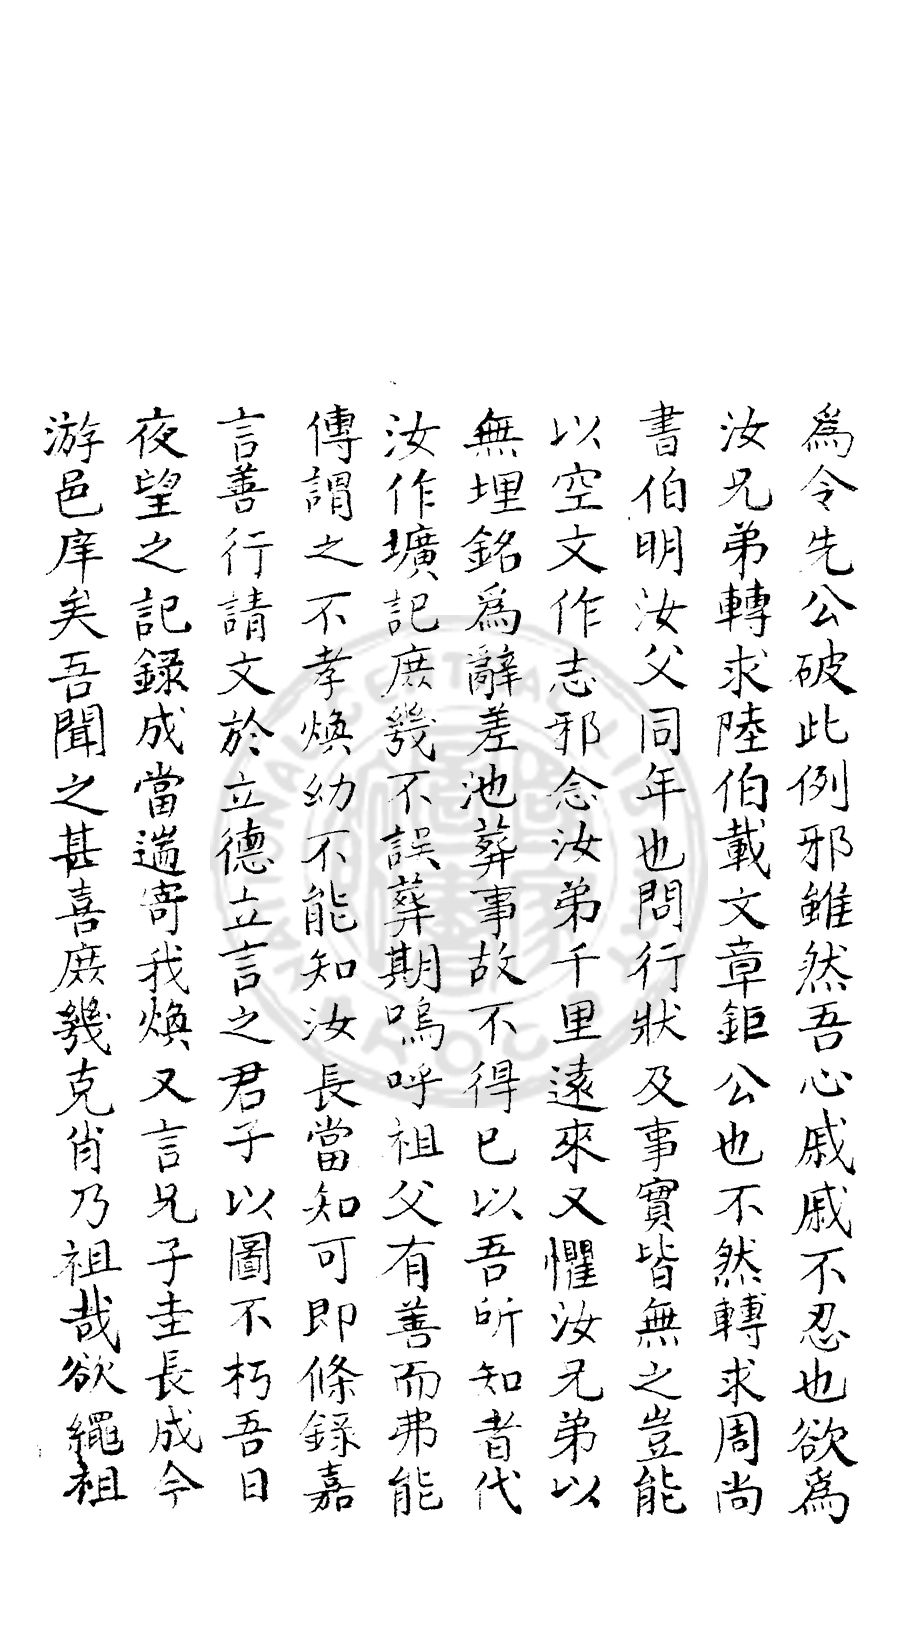 為令先公破此例邪雖然吾心戚戚不忍也欲為
汝兄弟轉求陸伯載文章鉅公也不然轉求周尚
書伯明汝父同年也問行狀及事實皆無之豈能
以空文作志邪念汝弟千里遠來又懼汝兄弟以
無埋銘為辭差池葬事故不得已以吾所知者代
汝作壙記庶幾不誤葬期嗚呼祖父有善而弗能
傳謂之不孝煥幼不能知汝長當知可即條錄嘉
言善行請文於立德立言之君子以圖不朽吾日
夜望之記録成當遄寄我煥又言兄子圭長成今
游邑庠矣吾聞之甚喜庶幾克肖乃祖哉欲繩祖